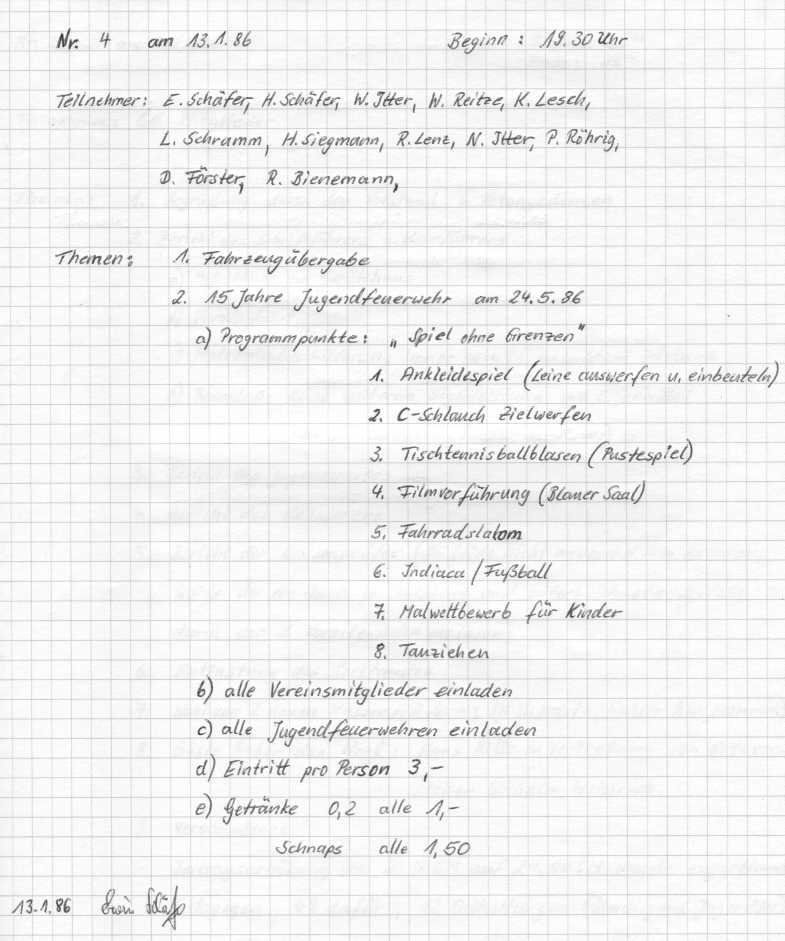 Nr. 4 am 13.1.86 Beginn : 19.30 Uhr
Teilnehmer: E. Schäfer, H. Schäfer, W. Itter, W. Reitze, K. Lesch,
L. Schramm, H. Siegmann, R. Lenz, N. Itter, P. Röhrig,
D. Förster, R. Bienemann,
Themen: 1. Fahrzeugübergabe
2. 15 Jahre Jugendfeuerwehr am 24.5.86
a) Programmpunkte: „Spiel ohne Grenzen"
1. Ankleidespiel (Leine auswerfen u. einbeuteln)
2. C-Schlauch Zielwerfen
3. Tischtennisballblasen (Pustespiel)
4. Filmvorführung (Blauer Saal)
5. Fahrradslalom
6. Indiaca / Fußball
7. Malwettbewerb für Kinder
8. Tauziehen
b) alle Vereinsmitglieder einladen
c) alle Jugendfeuerwehren einladen
d) Eintritt pro Person 3,-
e) Getränke 0,2 alle 1,-
Schnaps alle 1,50
13.1.86